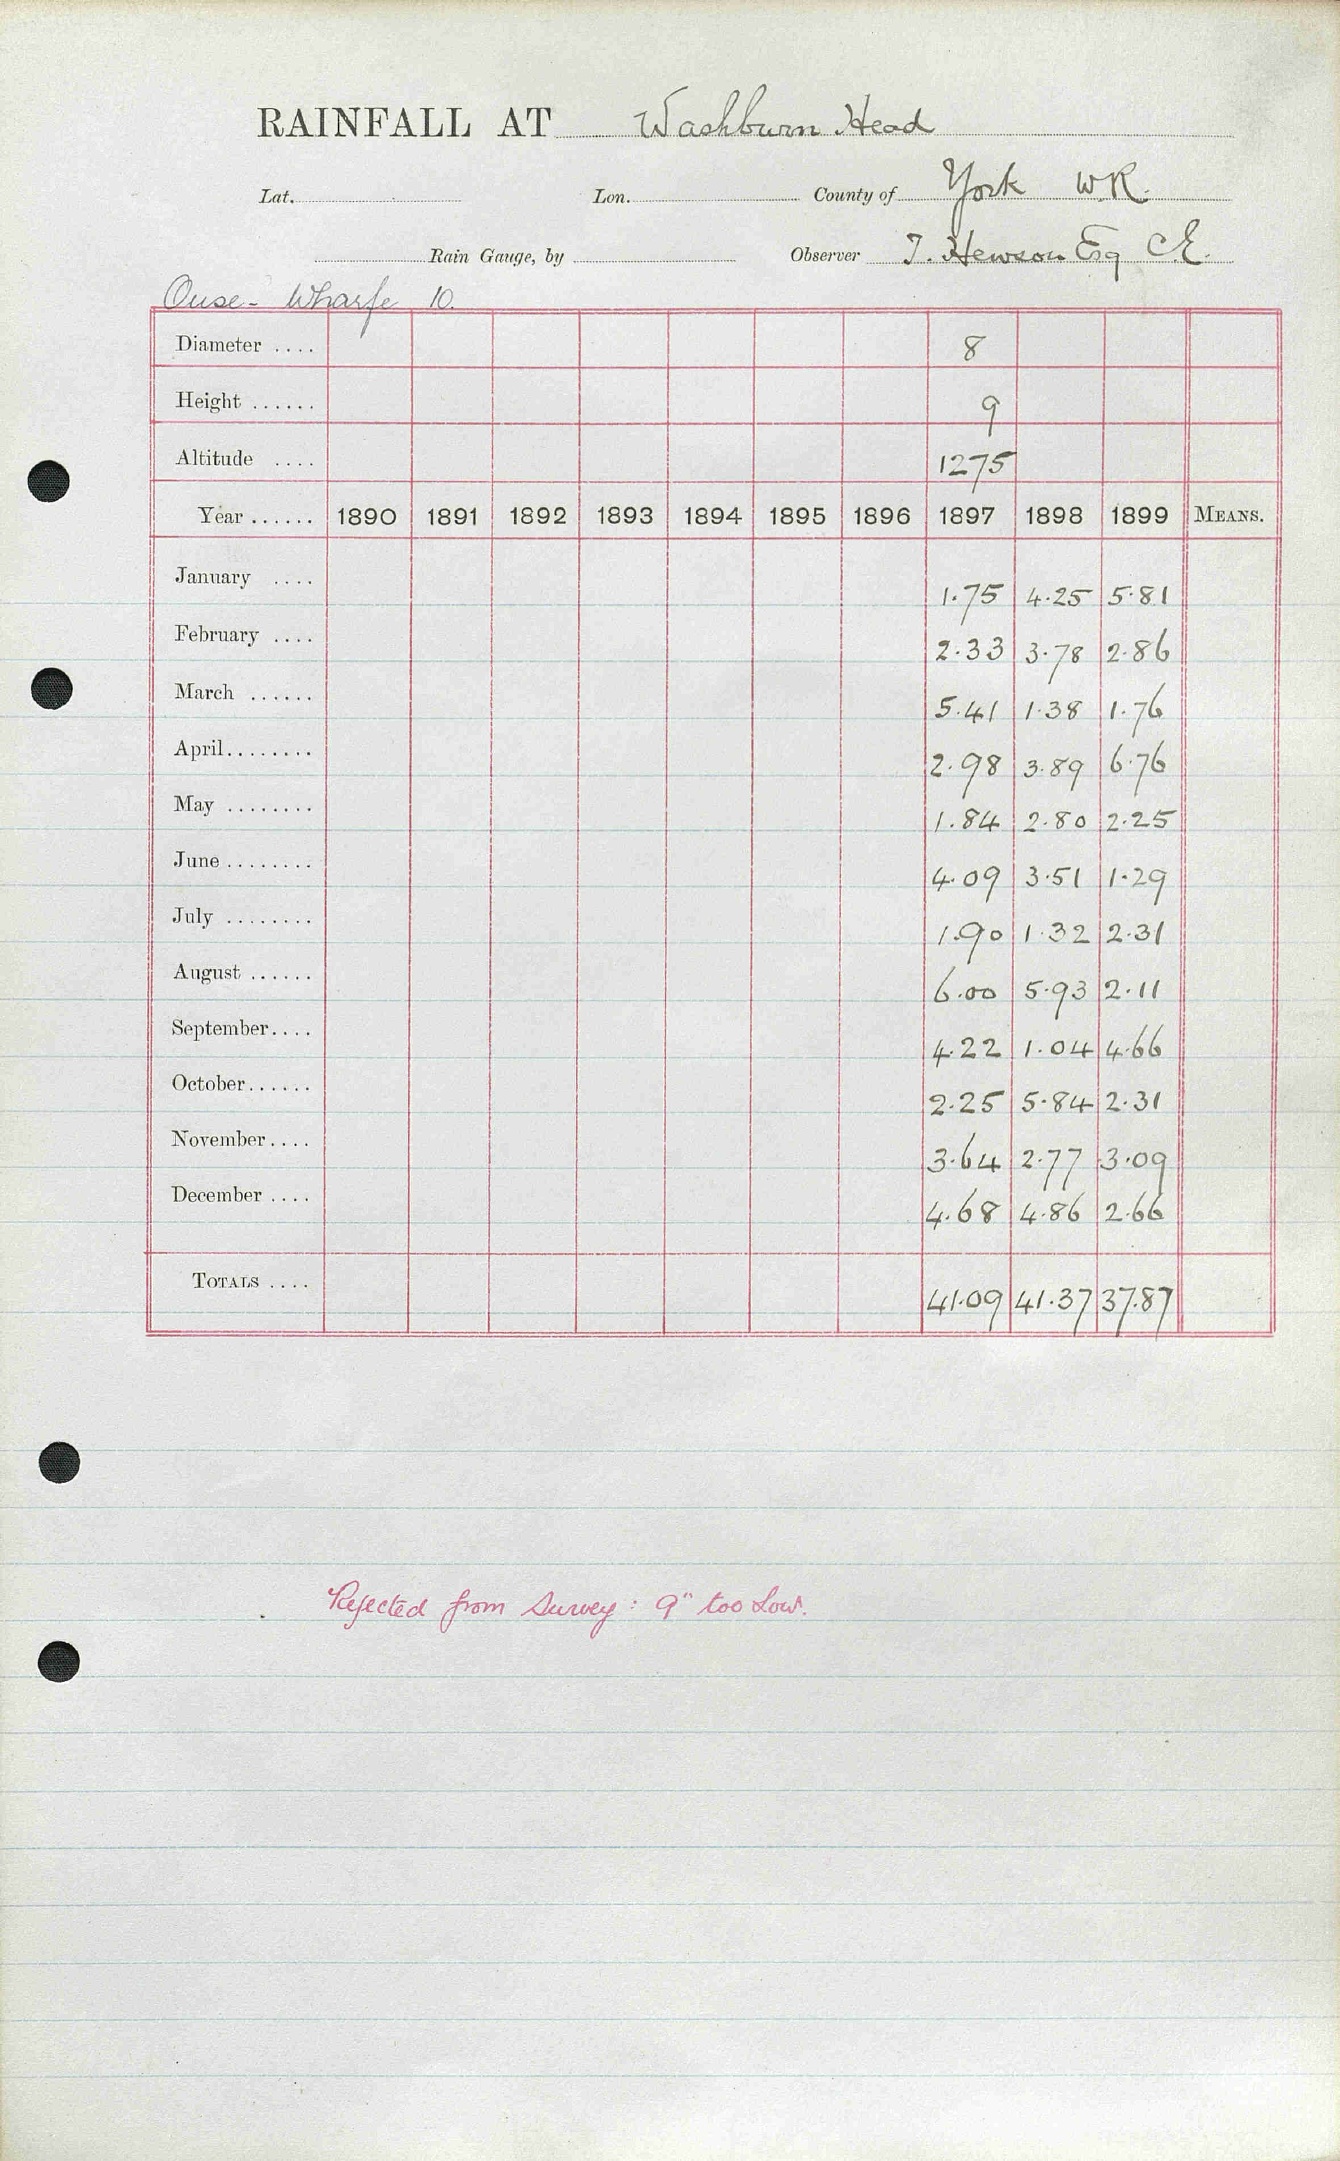 RAINFALL AT Washburn Head
Lat. Lon. County of York W.R.
Rain Gauge, by Observer T. Hewson Esq C.E.
Ouse - Wharfe 10.
Diameter .... 8
Height ...... 9
Altitude .... 1275
Year ...... 1890 1891 1892 1893 1894 1895 1896 1897 1898 1899 MEANS.
January .... 1.75 4.25 5.81
February .... 2.33 3.78 2.86
March ...... 5.41 1.38 1.76
April ........ 2.98 3.89 6.76
May ........ 1.84 2.80 2.25
June ........ 4.09 3.51 1.29
July ........ 1.90 1.32 2.31
August ...... 6.00 5.93 2.11
September .... 4.22 1.04 4.66
October ...... 2.25 5.84 2.31
November .... 3.64 2.77 3.09
December .... 4.68 4.86 2.66
TOTALS .... 41.09 41.37 37.87
Rejected from Survey : 9" too Low.